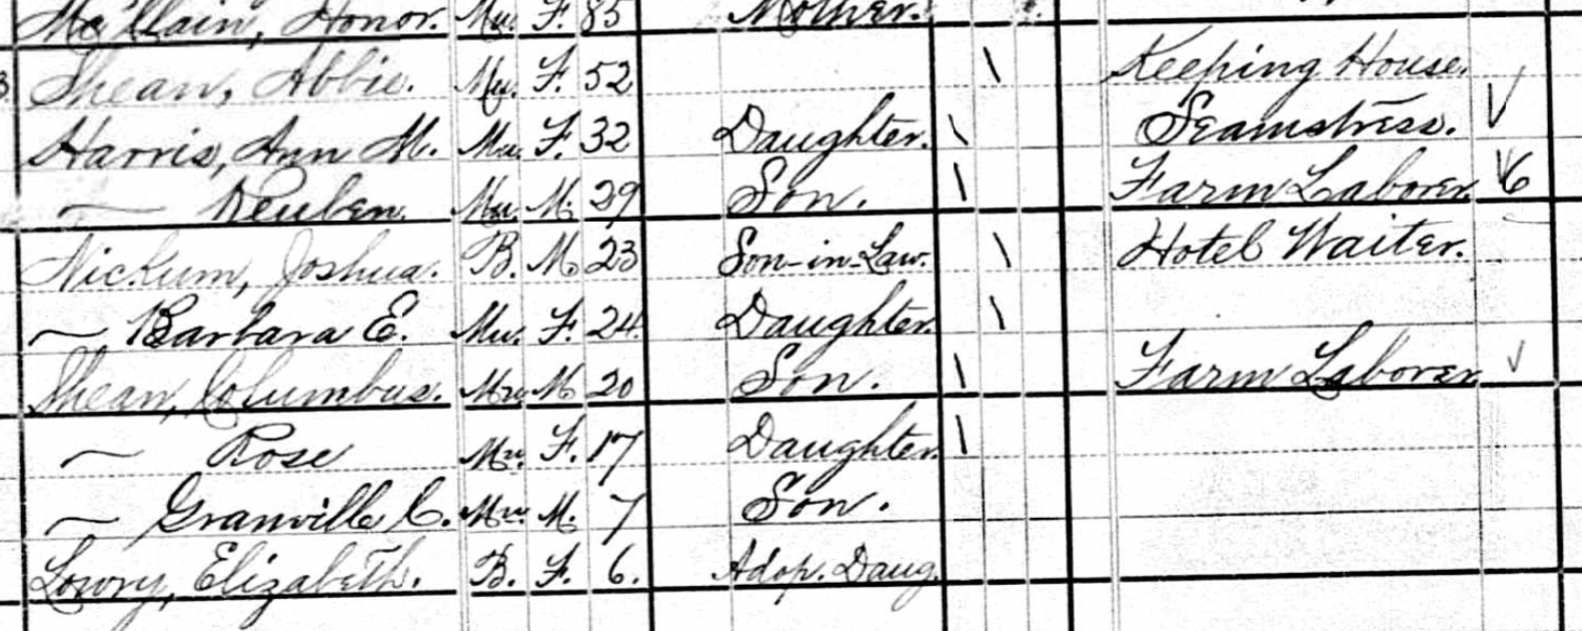 Honor. Mu. F. 85 Mother.
Shean, Abbie. Mu. F. 52 Keeping House.
Harris, Ann M. Mu. F. 32 Daughter. Seamstress.
— Reuben. Mu. M. 29 Son. Farm Laborer. 6
Nickum, Joshua. B. M. 23 Son-in-Law. Hotel Waiter.
— Barbara E. Mu. F. 24. Daughter.
Shean, Columbus. Mu. M. 20 Son. Farm Laborer
— Rose Mu. F. 17 Daughter.
— Granville C. Mu. M. 7 Son.
Lowry, Elizabeth. B. F. 6. Adop. Daug.